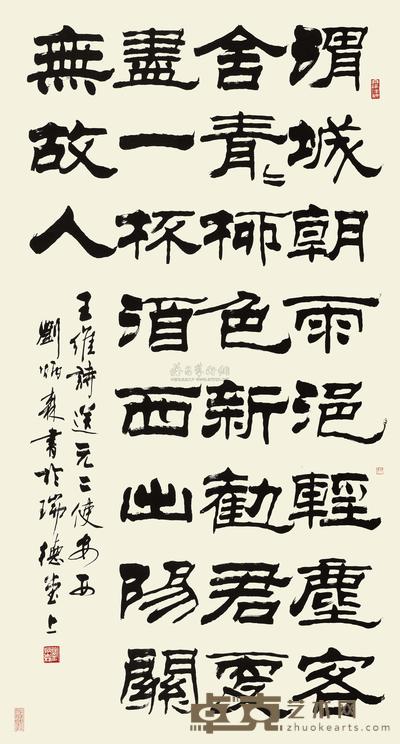 渭城朝雨浥輕塵客
舍青〻柳色新勸君更
盡一杯酒西出陽關
無故人
王維詩送元二使安西
劉炳森書於瑞德堂上
艺术网
zhuokearts.com